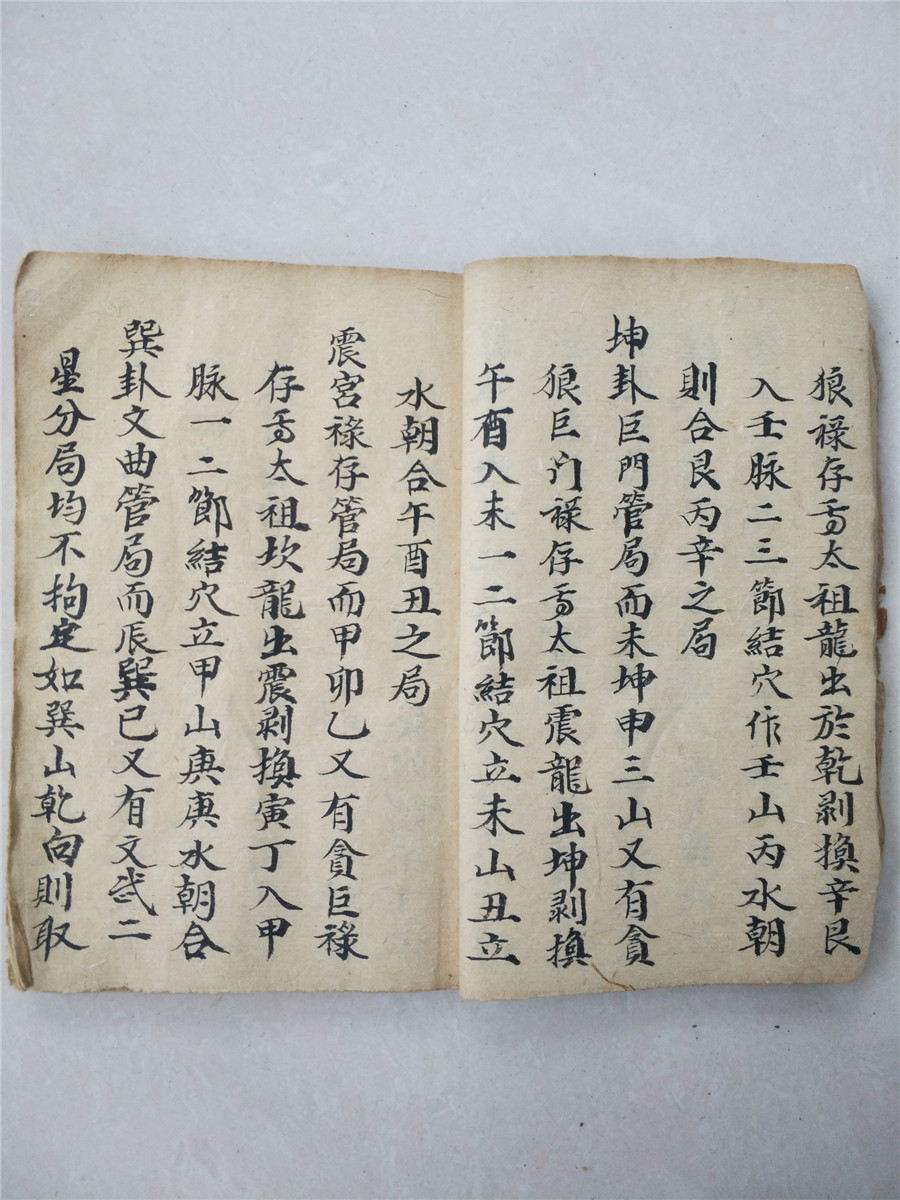 狼禄存為太祖龍出於乾剥換辛艮
入壬脉二三節結穴作壬山丙水朝
則合艮丙辛之局
坤卦巨門管局而未坤申三山又有貪
狼巨门禄存為太祖震龍出坤剥換
午酉入未一二節結穴立未山丑立
水朝合午酉丑之局
震宮禄存管局而甲卯乙又有貪巨禄
存為太祖坎龍出震剥換寅丁入甲
脉一二節結穴立甲山庚庚水朝合
巽卦文曲管局而辰巽巳又有文武二
星分局均不拘定如巽山乾向則取